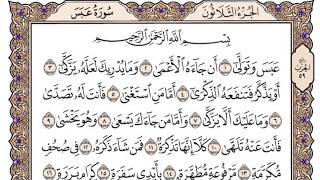 الجزء الثلاثون
سورة عبس
ربع
الحزب
٥٩
بِسْمِ اللَّهِ الرَّحْمَٰنِ الرَّحِيمِ
عَبَسَ وَتَوَلَّىٰ ١ أَن جَاءَهُ الْأَعْمَىٰ ٢ وَمَا يُدْرِيكَ لَعَلَّهُ يَزَّكَّىٰ ٣
أَوْ يَذَّكَّرُ فَتَنفَعَهُ الذِّكْرَىٰ ٤ أَمَّا مَنِ اسْتَغْنَىٰ ٥ فَأَنتَ لَهُ تَصَدَّىٰ
٦ وَمَا عَلَيْكَ أَلَّا يَزَّكَّىٰ ٧ وَأَمَّا مَن جَاءَكَ يَسْعَىٰ ٨ وَهُوَ يَخْشَىٰ ٩
فَأَنتَ عَنْهُ تَلَهَّىٰ ١٠ كَلَّا إِنَّهَا تَذْكِرَةٌ ١١ فَمَن شَاءَ ذَكَرَهُ ١٢ فِي صُحُفٍ
مُّكَرَّمَةٍ ١٣ مَّرْفُوعَةٍ مُّطَهَّرَةٍ ١٤ بِأَيْدِي سَفَرَةٍ ١٥ كِرَامٍ بَرَرَةٍ ١٦